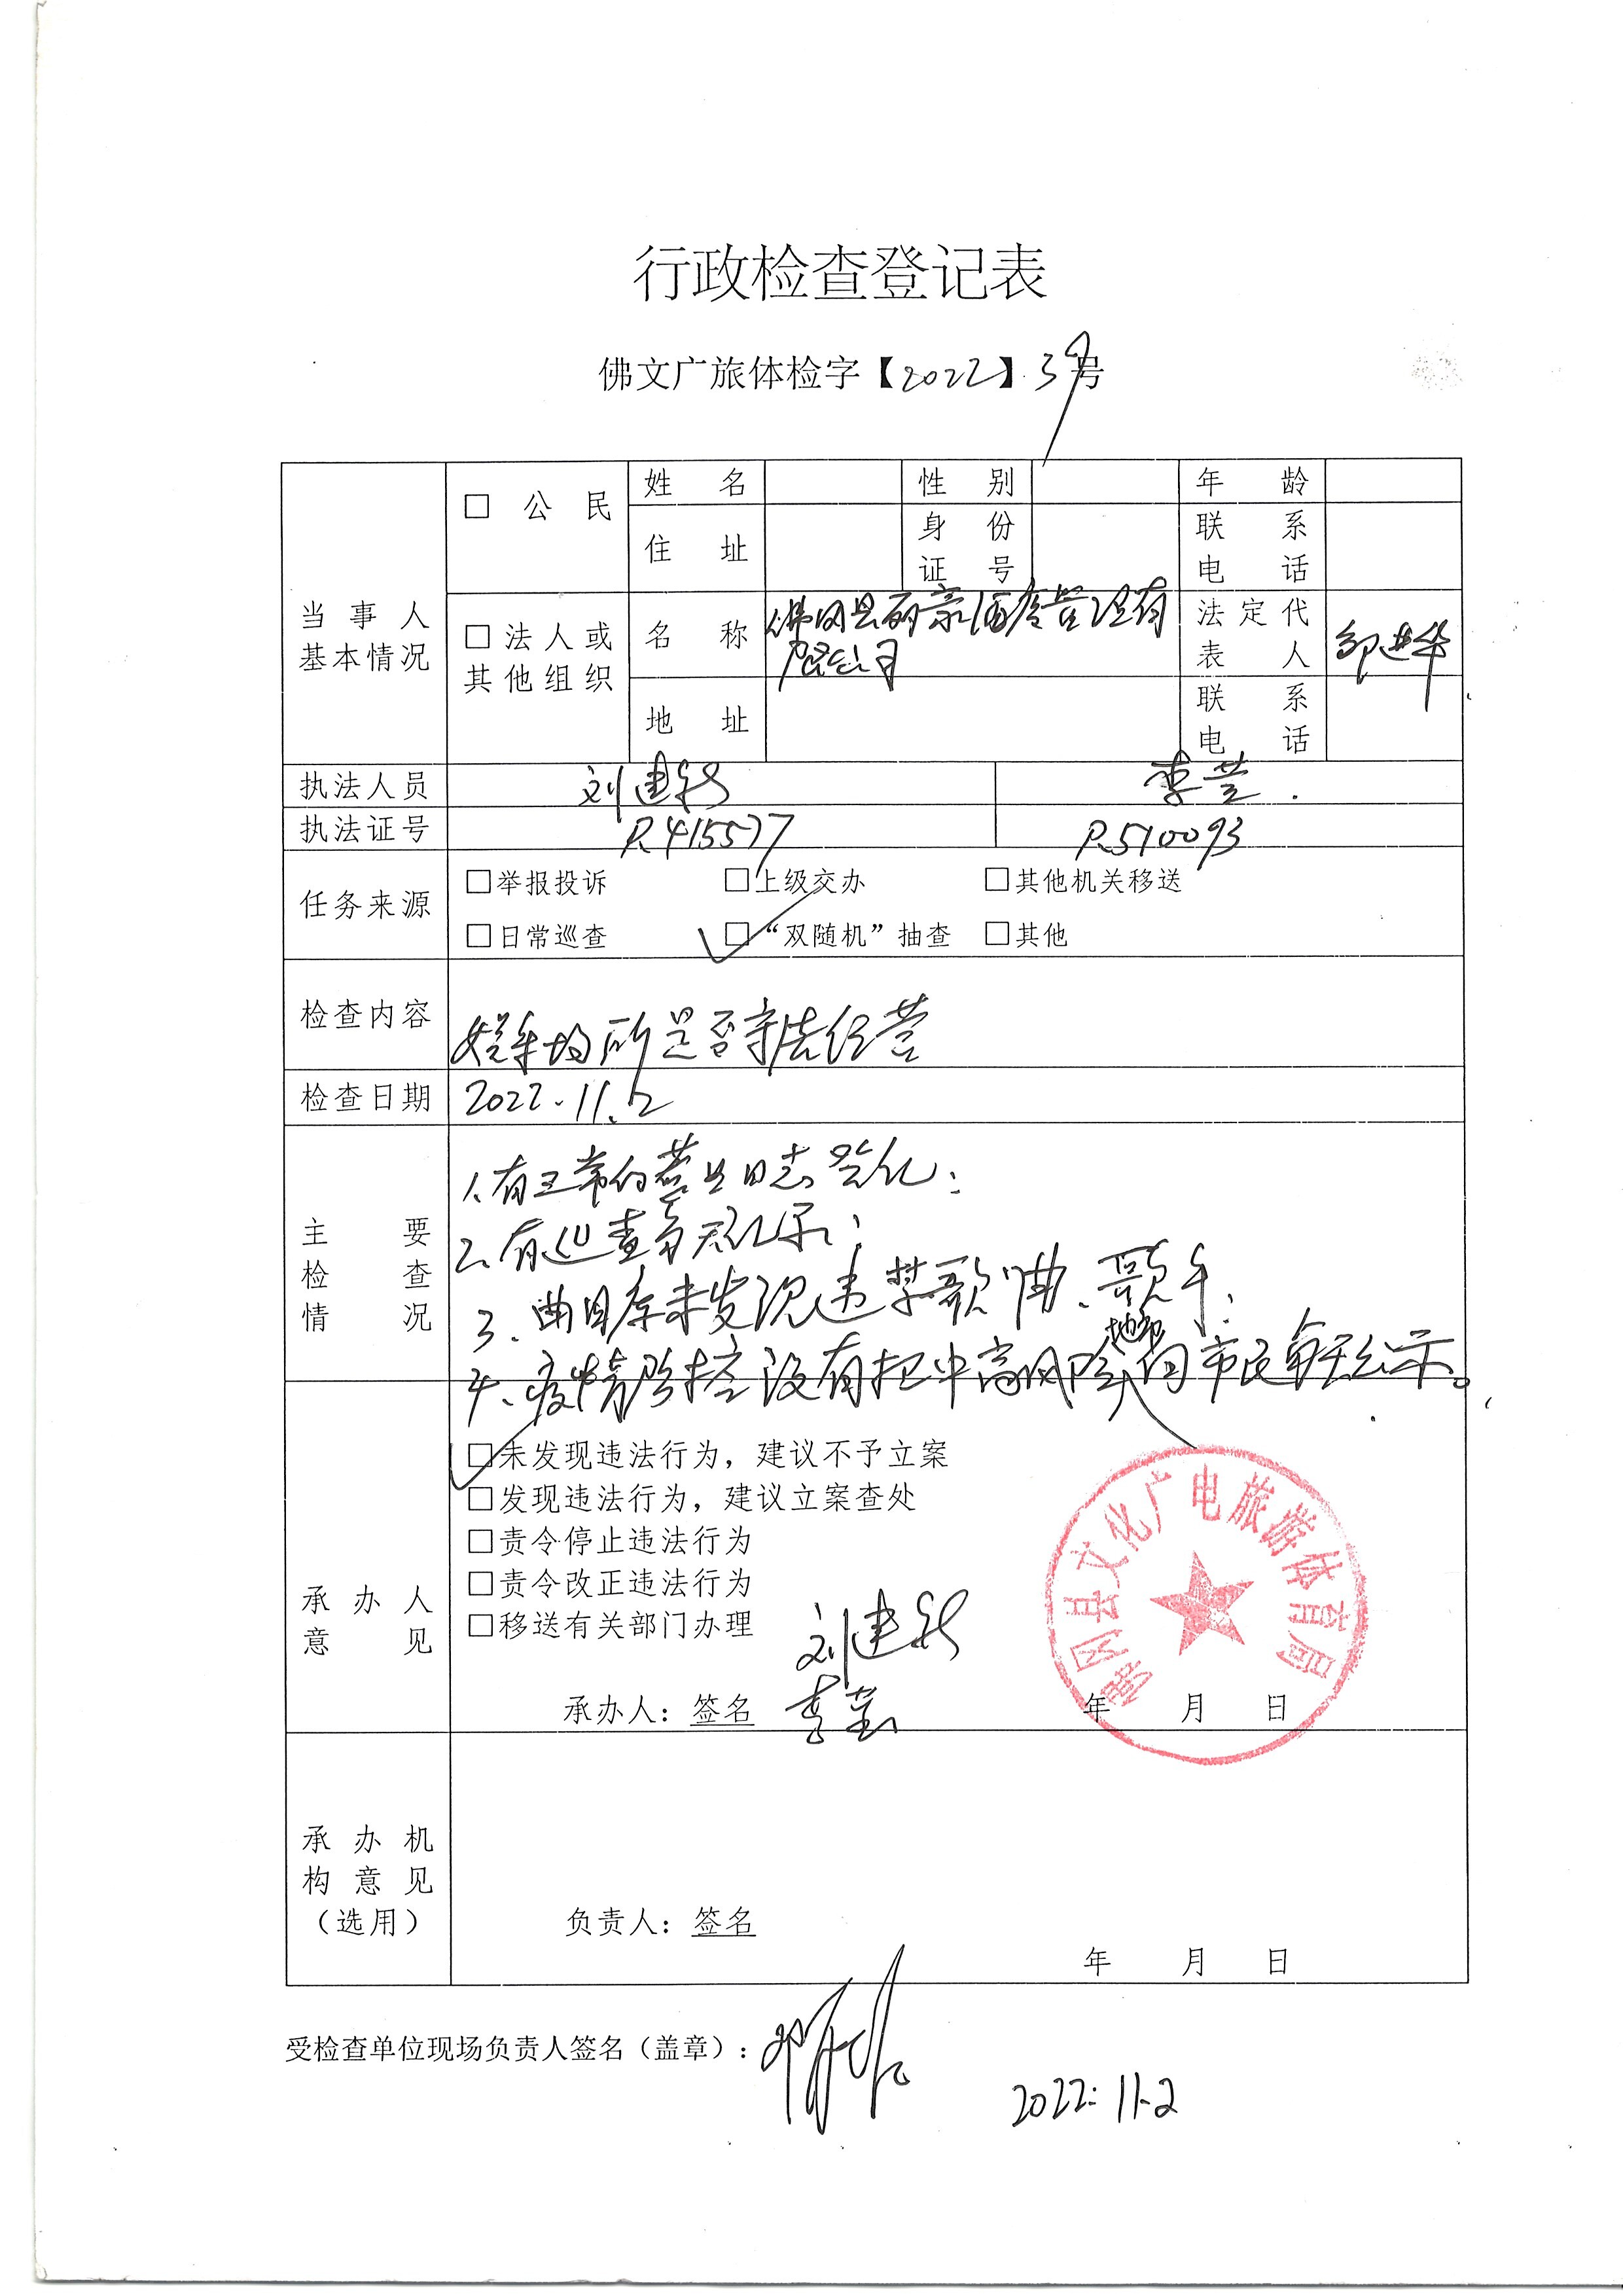 行政检查登记表
佛文广旅体检字【2022】39号
当事人基本情况
□ 公民
姓名
性别
年龄
住址
身份证号
联系电话
□法人或其他组织
名称
佛冈县丽豪酒店管理有
限公司
法定代表人
邹进华
地址
联系电话
执法人员
刘建
李莹
执法证号
P415577
P510093
任务来源
□举报投诉 □上级交办 □其他机关移送
□日常巡查 □“双随机”抽查 □其他
检查内容
娱乐场所是否守法经营
检查日期
2022.11.2
主要检查情况
1、有正常的营业日志登记;
2、有巡查记录;
3、曲目库未发现违禁歌曲、歌手;
4、疫情防控没有把中高风险地部向市民每天公示。
承办人意见
□未发现违法行为，建议不予立案
□发现违法行为，建议立案查处
□责令停止违法行为
□责令改正违法行为
□移送有关部门办理
刘建
承办人：签名 李莹
年 月 日
佛冈县文化广电旅游体育局
承办机构意见（选用）
负责人：签名
年 月 日
受检查单位现场负责人签名（盖章）：
2022.11.2